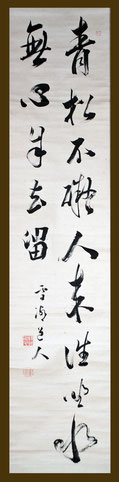 青松不礙人来往野水
無心自去留
道人